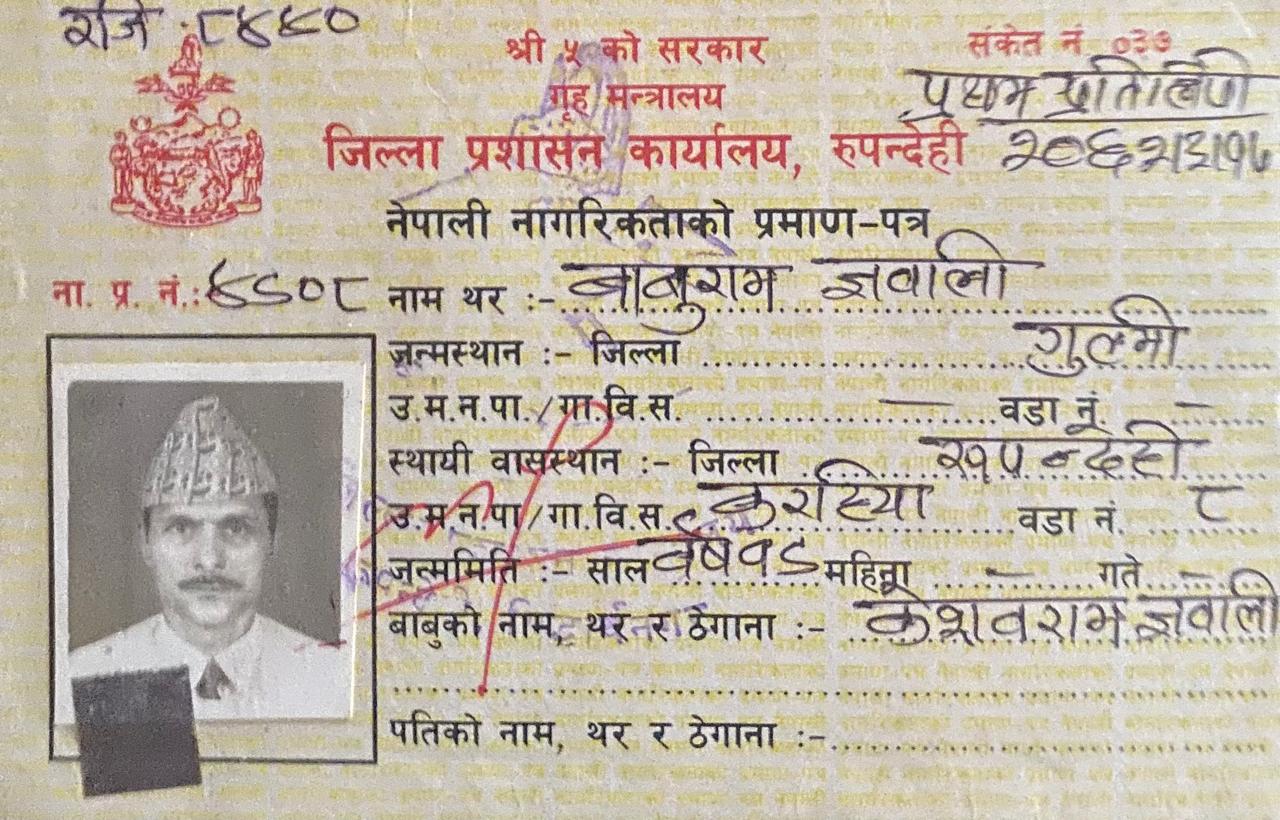 श्री ५ को सरकार
संकेत नं ०३७
गृह मन्त्रालय
प्रथम प्रतिलिपी
जिल्ला प्रशासन कार्यालय, रुपन्देही
नेपाली नागरिकताको प्रमाण-पत्र
ना. प्र. नं.:
नाम थर :- बाबुराम ज्ञवाली
जन्मस्थान :- जिल्ला गुल्मी
उ.म.न.पा./गा.वि.स. — वडा नं. —
स्थायी वासस्थान :- जिल्ला रुपन्देही
उ.म.न.पा/गा.वि.स. करहिया वडा नं. ८
जन्ममिति :- साल महिना — गते —
बाबुको नाम, थर र ठेगाना :- केशवराम ज्ञवाली
पतिको नाम, थर र ठेगाना :-